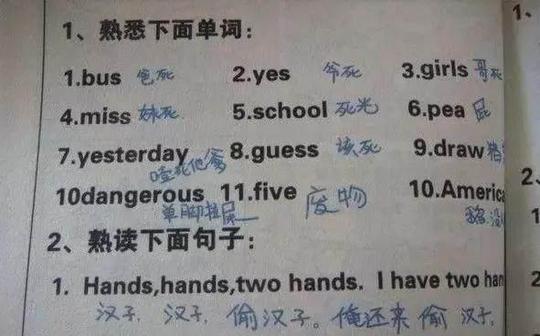 1、
1、熟悉下面单词：
1.bus 爸死 2.yes 爷死 3.girls 哥死
4.miss 妹死 5.school 死光 6.pea 屁
7.yesterday 噎死他爹 8.guess 该死 9.draw 猪
10dangerous 单脚拉屎 11.five 废物 10.America
2、
2、熟读下面句子：
1. Hands,hands,two hands. I have two han
汉子，汉子，偷汉子。俺还来偷汉子，